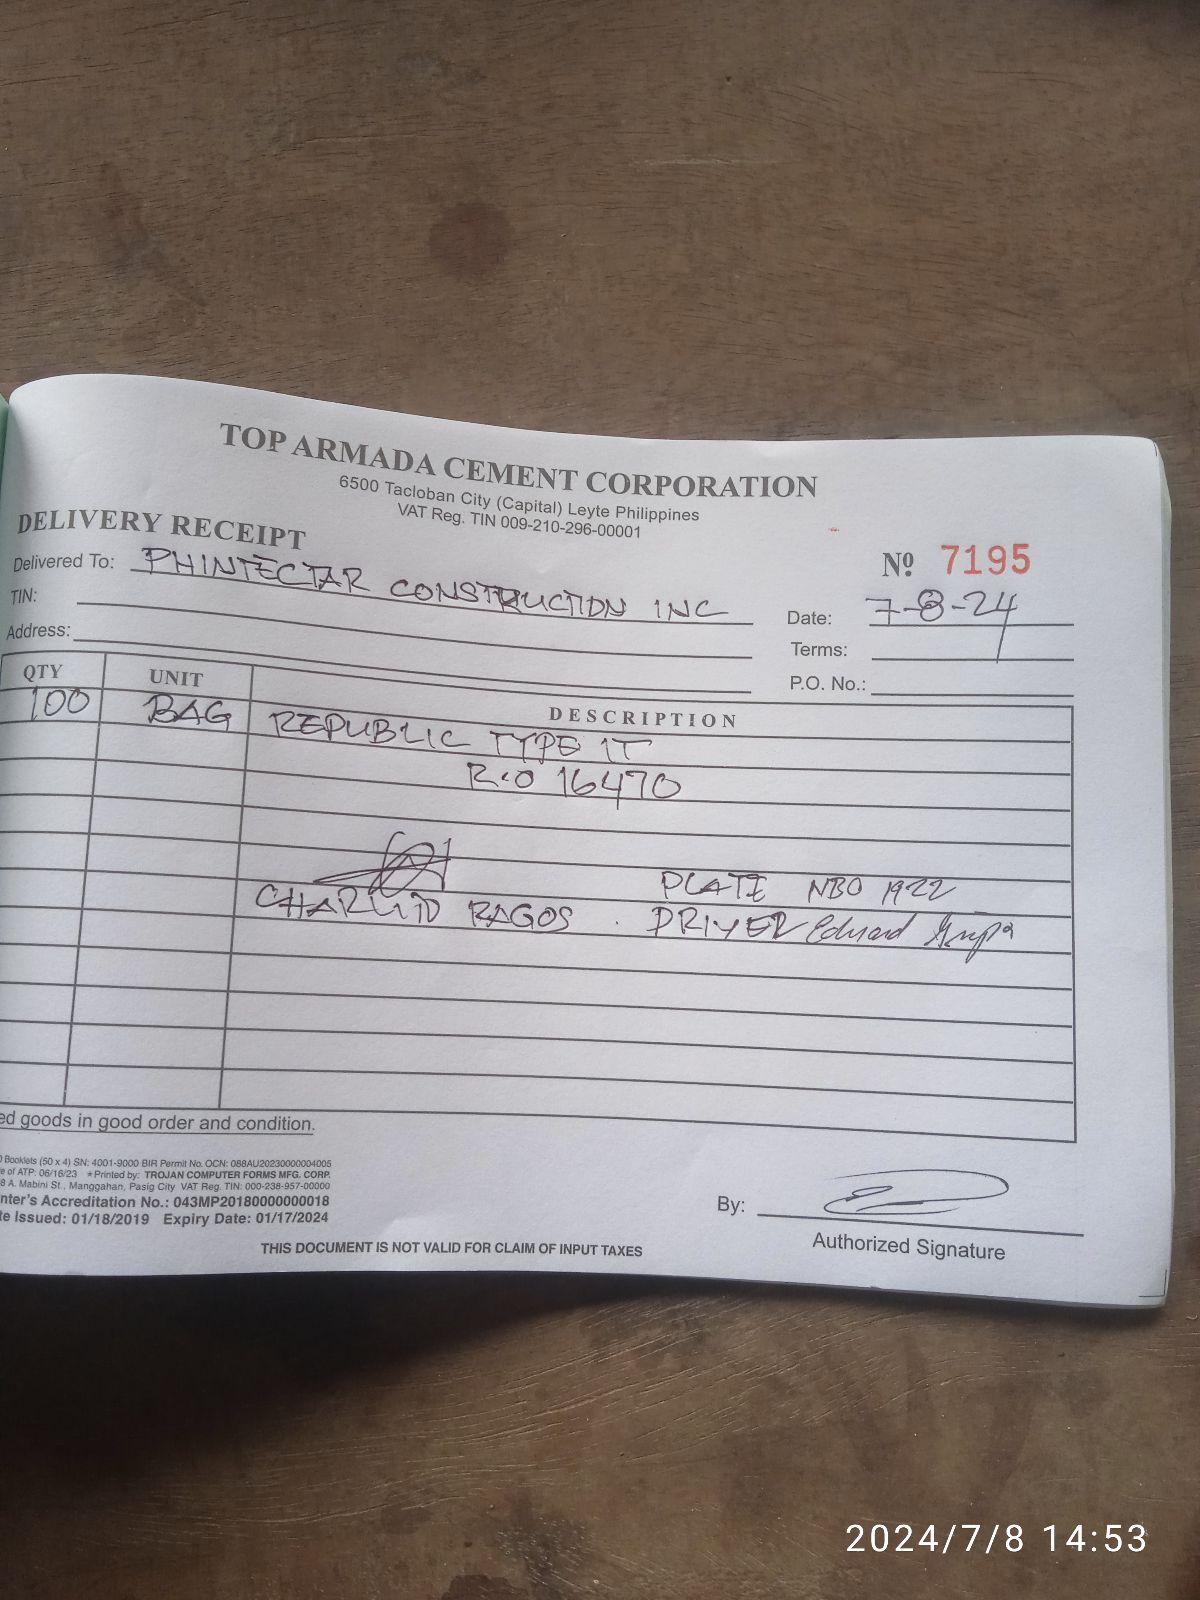 TOP ARMADA CEMENT CORPORATION
6500 Tacloban City (Capital) Leyte Philippines
VAT Reg. TIN 009-210-296-00001
DELIVERY RECEIPT
Nº 7195
Delivered To: PHINTECTAR CONSTRUCTION INC
Date: 7-8-24
TIN:
Terms:
Address:
P.O. No.:
QTY UNIT DESCRIPTION
100 BAG REPUBLIC TYPE 1T
R.O 16470
PLATE NBO 1922
RAGOS DRIVER Eduard
ed goods in good order and condition.
0 Booklets (50 x 4) SN: 4001-9000 BIR Permit No. OCN: 088AU20230000004005
e of ATP: 06/16/23 *Printed by: TROJAN COMPUTER FORMS MFG. CORP.
8 A. Mabini St., Manggahan, Pasig City VAT Reg. TIN: 000-238-957-00000
nter's Accreditation No.: 043MP20180000000018
te Issued: 01/18/2019 Expiry Date: 01/17/2024
By:
Authorized Signature
THIS DOCUMENT IS NOT VALID FOR CLAIM OF INPUT TAXES
2024/7/8 14:53